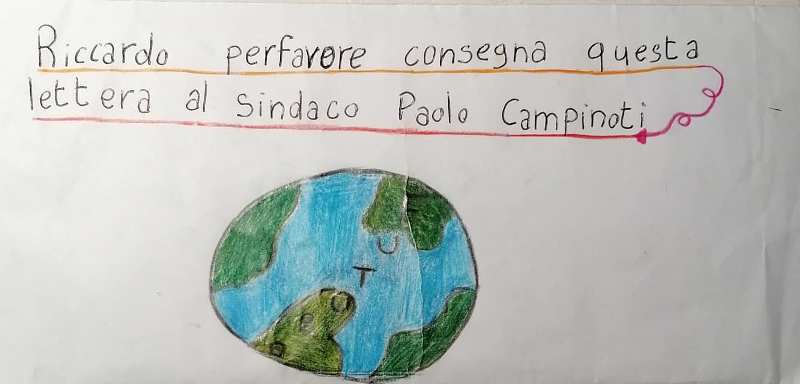 Riccardo perfavore consegna questa
lettera al Sindaco Paolo Campinoti